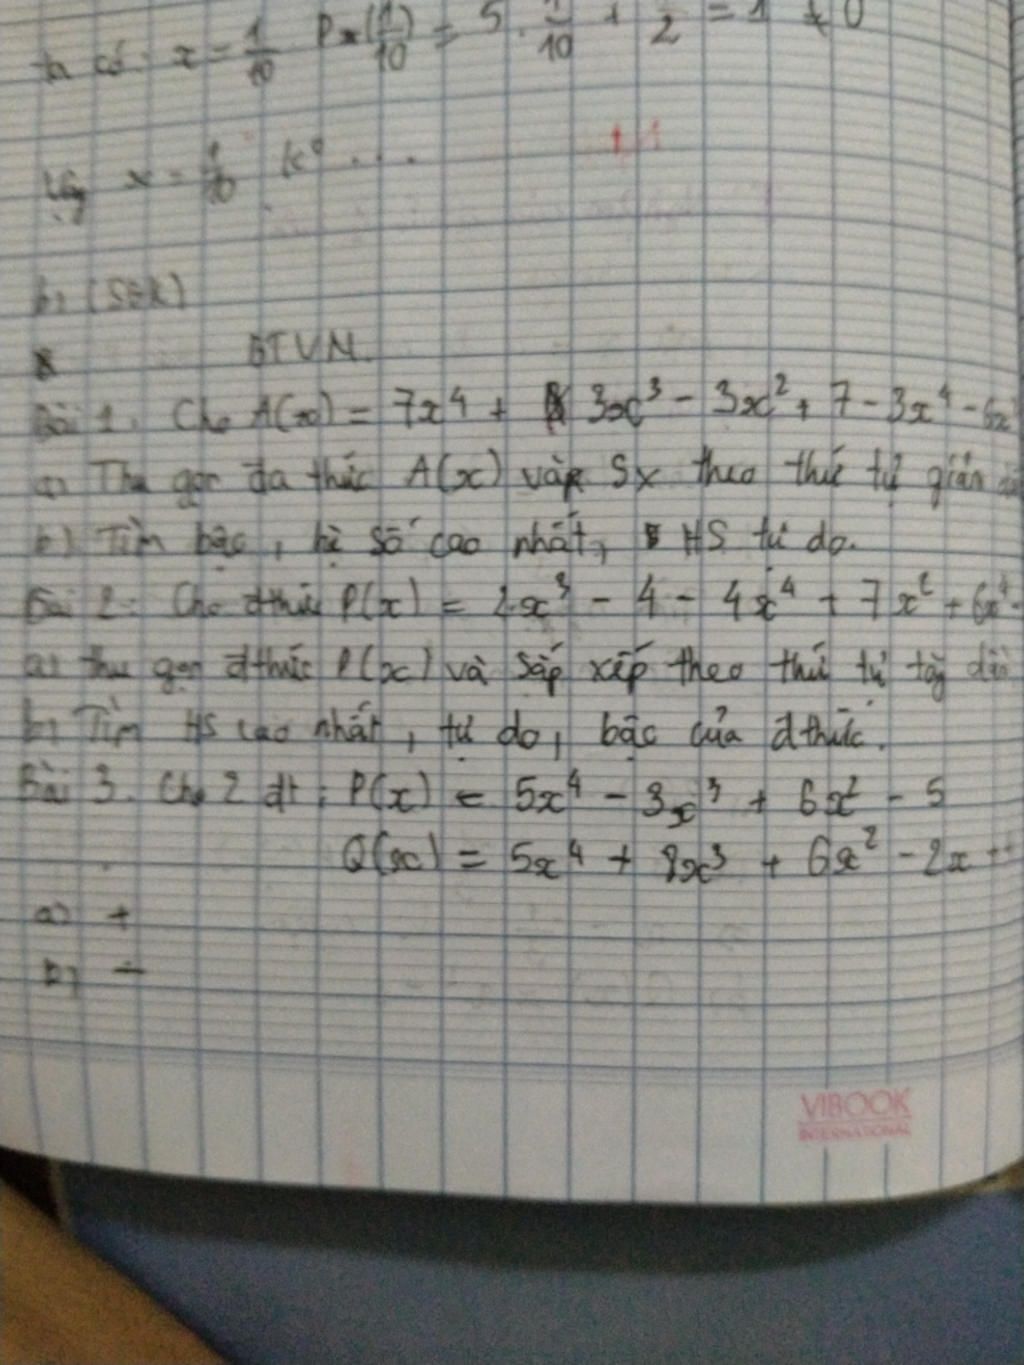 ta có: x = 1/10 Px(1/10) = 5 . 1/10 + 1/2 = 1 ≠ 0
Vậy x = 1/10 k° ...
b, (SGK)
BTVN
Bài 1. Cho A(x) = 7x⁴ + 3x³ - 3x² + 7 - 3x⁴ - 6x
a) Thu gọn đa thức A(x) và Sx theo thứ tự giản
b) Tìm bậc, hệ số cao nhất, HS tự do.
Bài 2: Cho đthức P(x) = 2x³ - 4 - 4x⁴ + 7x² + 6x⁴ -
a) thu gọn đthức P(x) và sắp xếp theo thứ tự tăg dần
b) Tìm HS cao nhất, tự do, bậc của đthức.
Bài 3. Cho 2 đt : P(x) = 5x⁴ - 3x³ + 6x² - 5
Q(x) = 5x⁴ + 8x³ + 6x² - 2x +
a) +
b) -
VIBOOK
INTERNATIONAL